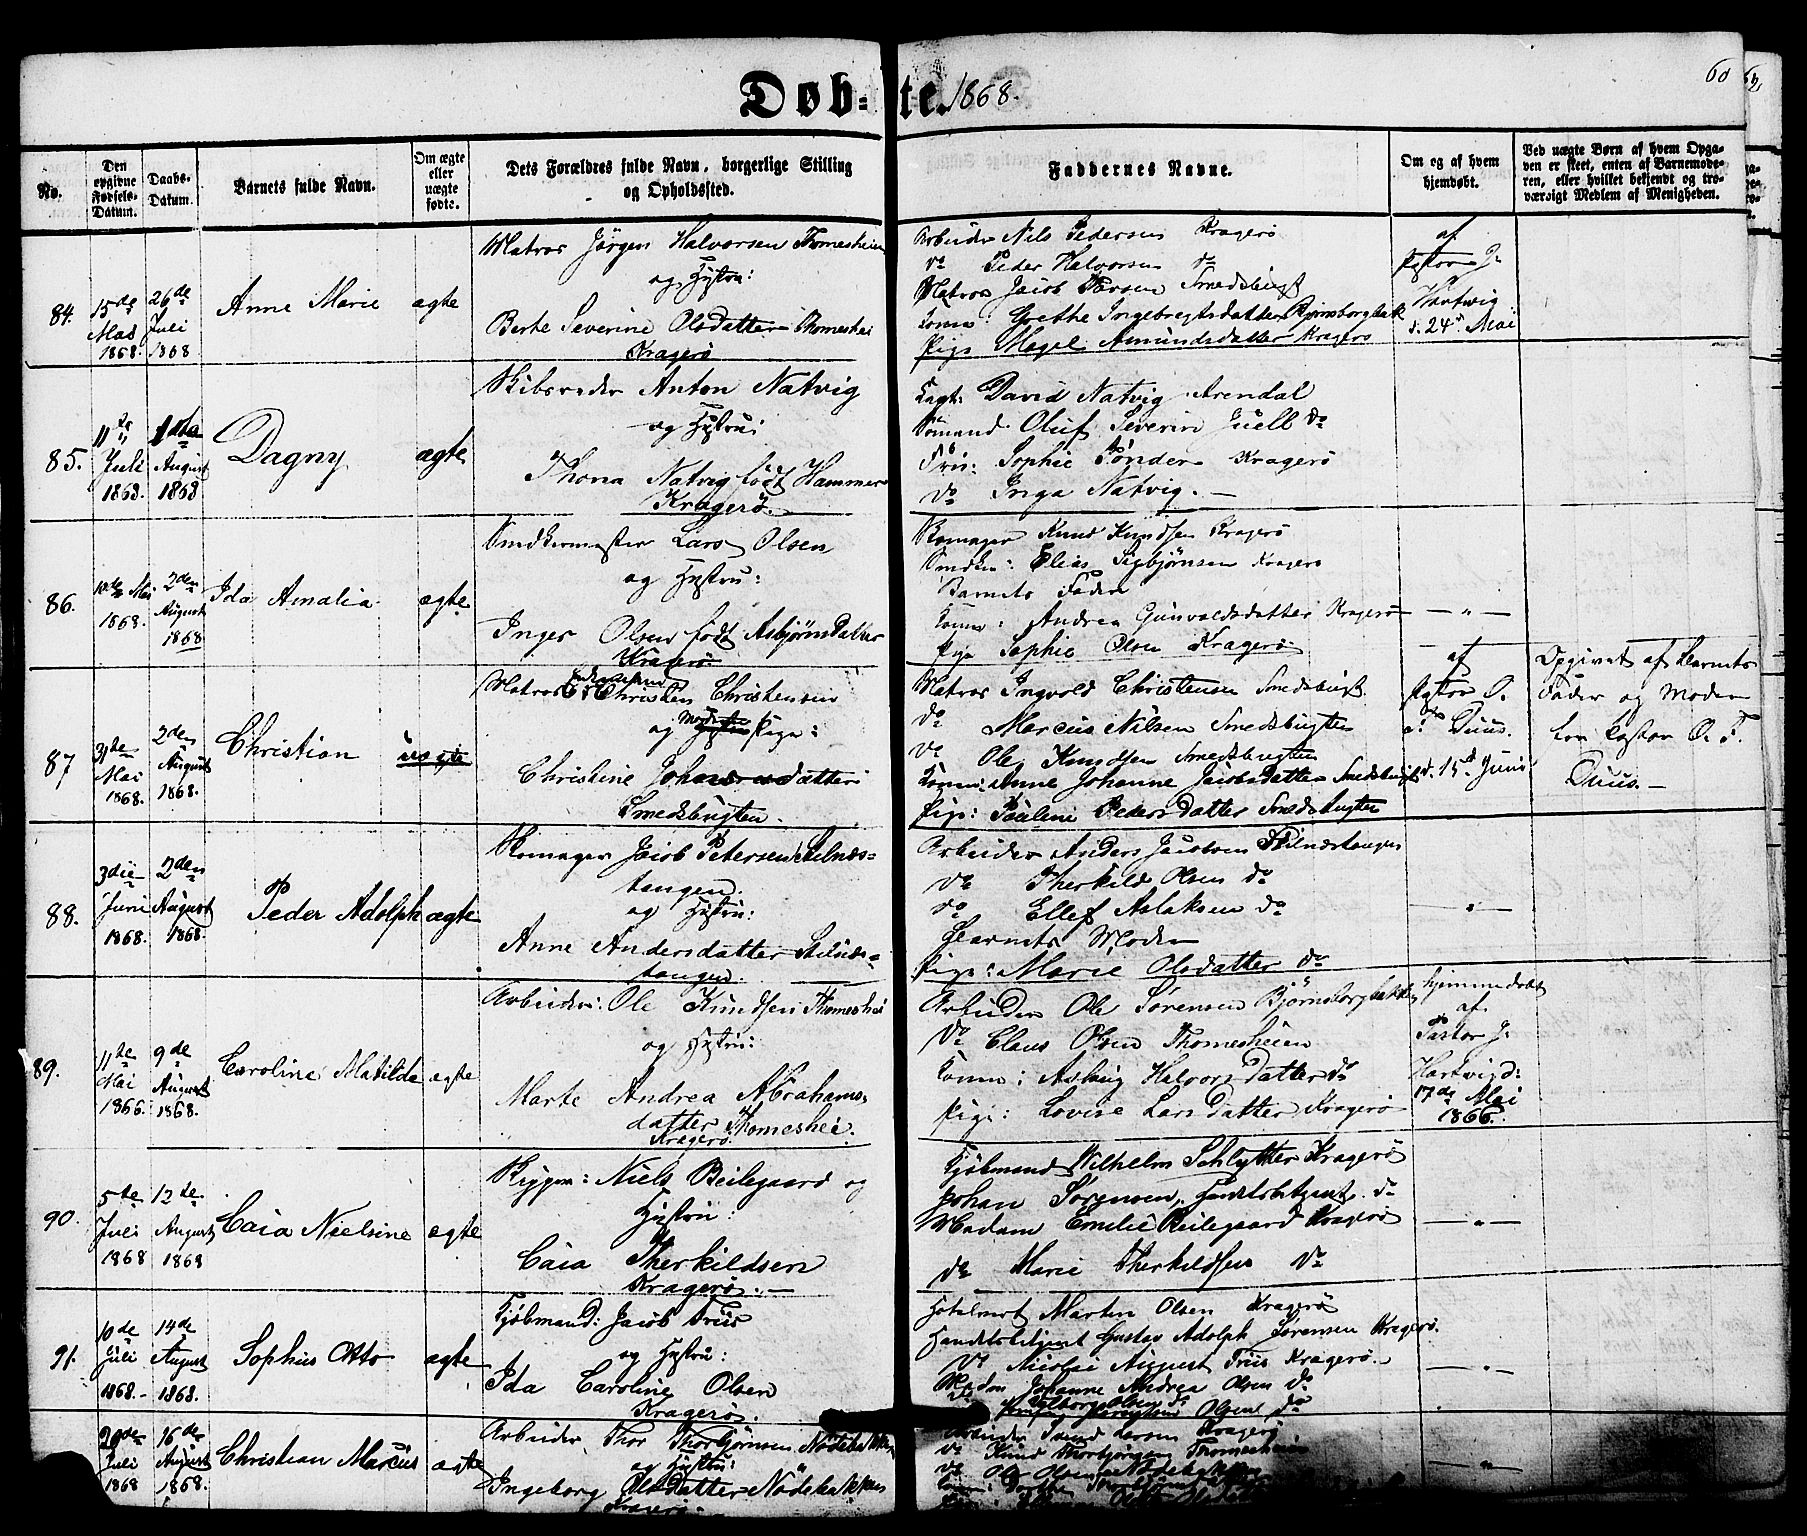 Døb-te. 1868.
60
62
No.
Den opgivne Fødsels-Datum.
Daabs-Datum.
Barnets fulde Navn.
Om ægte eller uægte fødte.
Dets Forældres fulde Navn, borgerlige Stilling og Opholdssted.
Faddernes Navne.
Om og af hvem hjemdøbt.
Ved uægte Børn af hvem Opgaven er skeet, enten af Barnemoderen, eller hvilket bekjendt og troværdigt Medlem af Menigheden.
84.
15de Mai 1868.
26de Juli 1868
Anne Marie
ægte
Matros Jörgen Halvorsen Thomesheien
og Hystru:
Berte Severine Olsdatter Thomeshei
Kragerø
Arbeider Nils Pedersen Kragerö
do Peder Halvorsen do
Matros Jacob Larsen Smedsbugt
Kone: Grethe Ingebregtsdatter Bjørnsborgbak
Pige Magel Amundsdatter Kragerø
af
Pastor J.
Hartvig
d. 24 Mai
85.
11te Juli 1868.
1ste August 1868
Dagny
ægte
Skibsreder Anton Natvig
og Hystru:
Thona Natvig født Hammer
Kragerö.
Capt: David Natvig Arendal
Sömand Oluf Severin Juell do
Frk: Sophie Tönder Kragerö
do Inga Natvig. —
86.
10de Mai 1868.
2den August 1868
Ida Amalia
ægte
Snedkermester Lars Olsen
og Hystru:
Inger Olsen født Asbjørnsdatter
Kragerø
Skomager Knud Knudsen Kragerö
Snedker: Elias Sigbjørnsen Kragerø
Barnets Fader
Kone: Andrea Gunvaldsdatter Kragerö
Pige Sophie Olsen Kragerø
— " —
87
31te Mai 1868.
2den August 1868.
Christian
uægte
Matros Christen Christensen
og Pige:
Christine Johansdatter
Smedsbugten.
Matros Ingvold Christensen Smedsbugt
do Marcus Nilsen Smedsbugten
do Ole Knudsen Smedsbugten
Kone: Anne Johanne Jacobsdatter Smedsbugt
Pige: Pauline Pedersdatter Smedsbugten
af
Pastor O.
F. Duus.
d. 15de Juni
Opgivet af Barnets
Fader og Moder
for Pastor O. F.
Duus. —
88.
3die Juni 1868.
2den August 1868.
Peder Adolph
ægte
Skomager Jacob Petersen Stilnæs-
tangen.
og Hystru:
Anne Andersdatter Stilnæs-
tangen.
Arbeider Anders Jacobsen Stilnæstangen
do Therkild Olsen do
do Ellef Aslaksen do
Barnets Moder
Pige: Marie Olsdatter do
— " —
89.
11te Mai 1866.
9de August 1868.
Caroline Matilde
ægte
Arbeider: Ole Knudsen Thomeshei
og Hystru:
Marte Andrea Abrahams-
datter Thomeshei.
Kragerø.
Arbeider Ole Sørensen Bjørnsborgbakke
do Claus Olsen Thomesheien
Kone: Aslaug Halvorsdatter do
Pige: Lovise Larsdatter Kragerö
hjemmedøbt
af
Pastor J.
Hartvig d:
17de Mai
1866.
90.
5te Juli 1868
12te August 1868
Caia Nielsine
ægte
Rigger: Niels Beilegaard og
Hystru:
Caia Therkildsen
Kragerö. —
Kjöbmand Wilhelm Schlytter Kragerö
Johan Sørensen, Handelsbetjent. do
Madam Emilie Beilegaard Kragerö
do Marie Therkildsen do
— " —
91.
10de Juli 1868.-
14de August 1868.
Sophus Otto
ægte
Kjöbmand: Jacob Friis
og Hystru:
Ida Caroline Olsen
Kragerö.
Hotelvert Martin Olsen Kragerö
Handelsbetjent Gustav Adolph Sørensen Kragerö.
do Nicolai August Friis Kragerö.
Madm Johanne Andrea Olsen do
Olsen do
— " —
20de Juli 1868
16de August 1868.
Christian Marcus
ægte
Arbeider Thor Thorbjørnsen Nödebakken
og Hystru:
Ingeborg Olsdatter Nödebakken
Kragerö.
Arbeider Svend Larsen Kragerö
do Knud Thorbjørnsen Thomesheien
do Ole Olsen Nödebakken
Kone: Dorthe
— " —